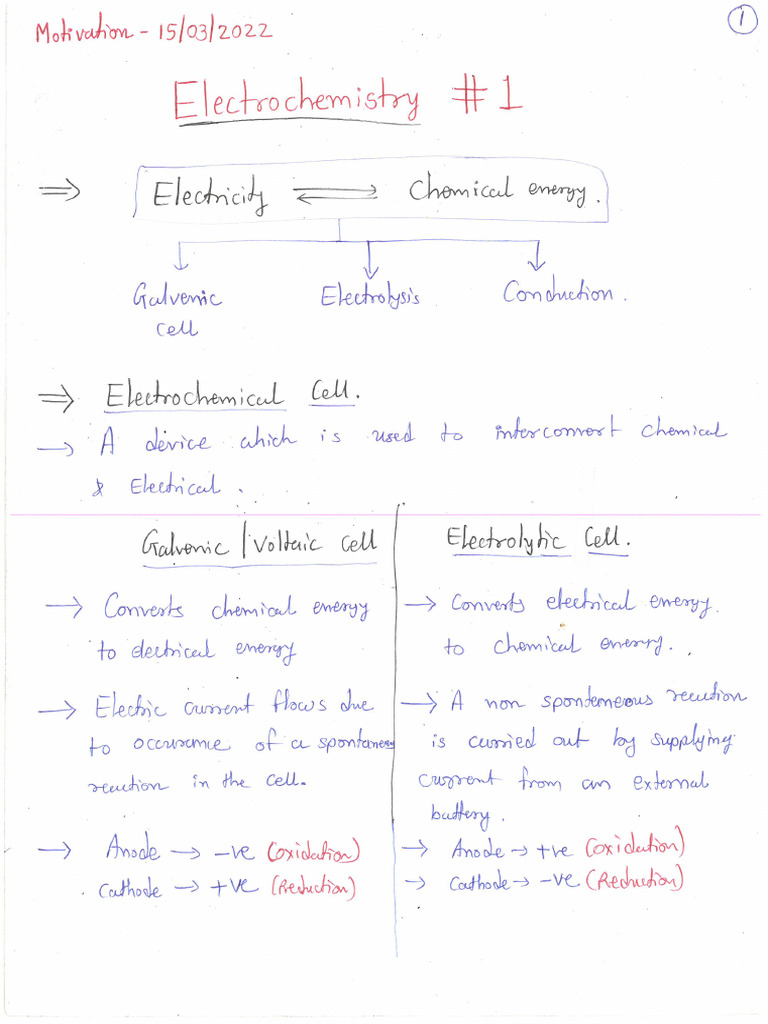 Motivation - 15/03/2022
1
Electrochemistry #1
⇒ Electricity ⇌ Chemical energy.
Galvenic cell
Electrolysis
Conduction.
⇒ Electrochemical Cell.
→ A device which is used to interconvert chemical
& Electrical.
Galvenic / Voltaic cell
→ Converts chemical energy
to electrical energy
→ Electric current flows due
to occurance of a spontaneous
reaction in the cell.
→ Anode → -ve (oxidation)
Cathode → +ve (Reduction)
Electrolytic Cell.
→ Converts electrical energy.
to chemical energy.
→ A non spontaneous reaction
is carried out by supplying
current from an external
battery.
→ Anode → +ve (oxidation)
→ Cathode → -ve (Reduction)